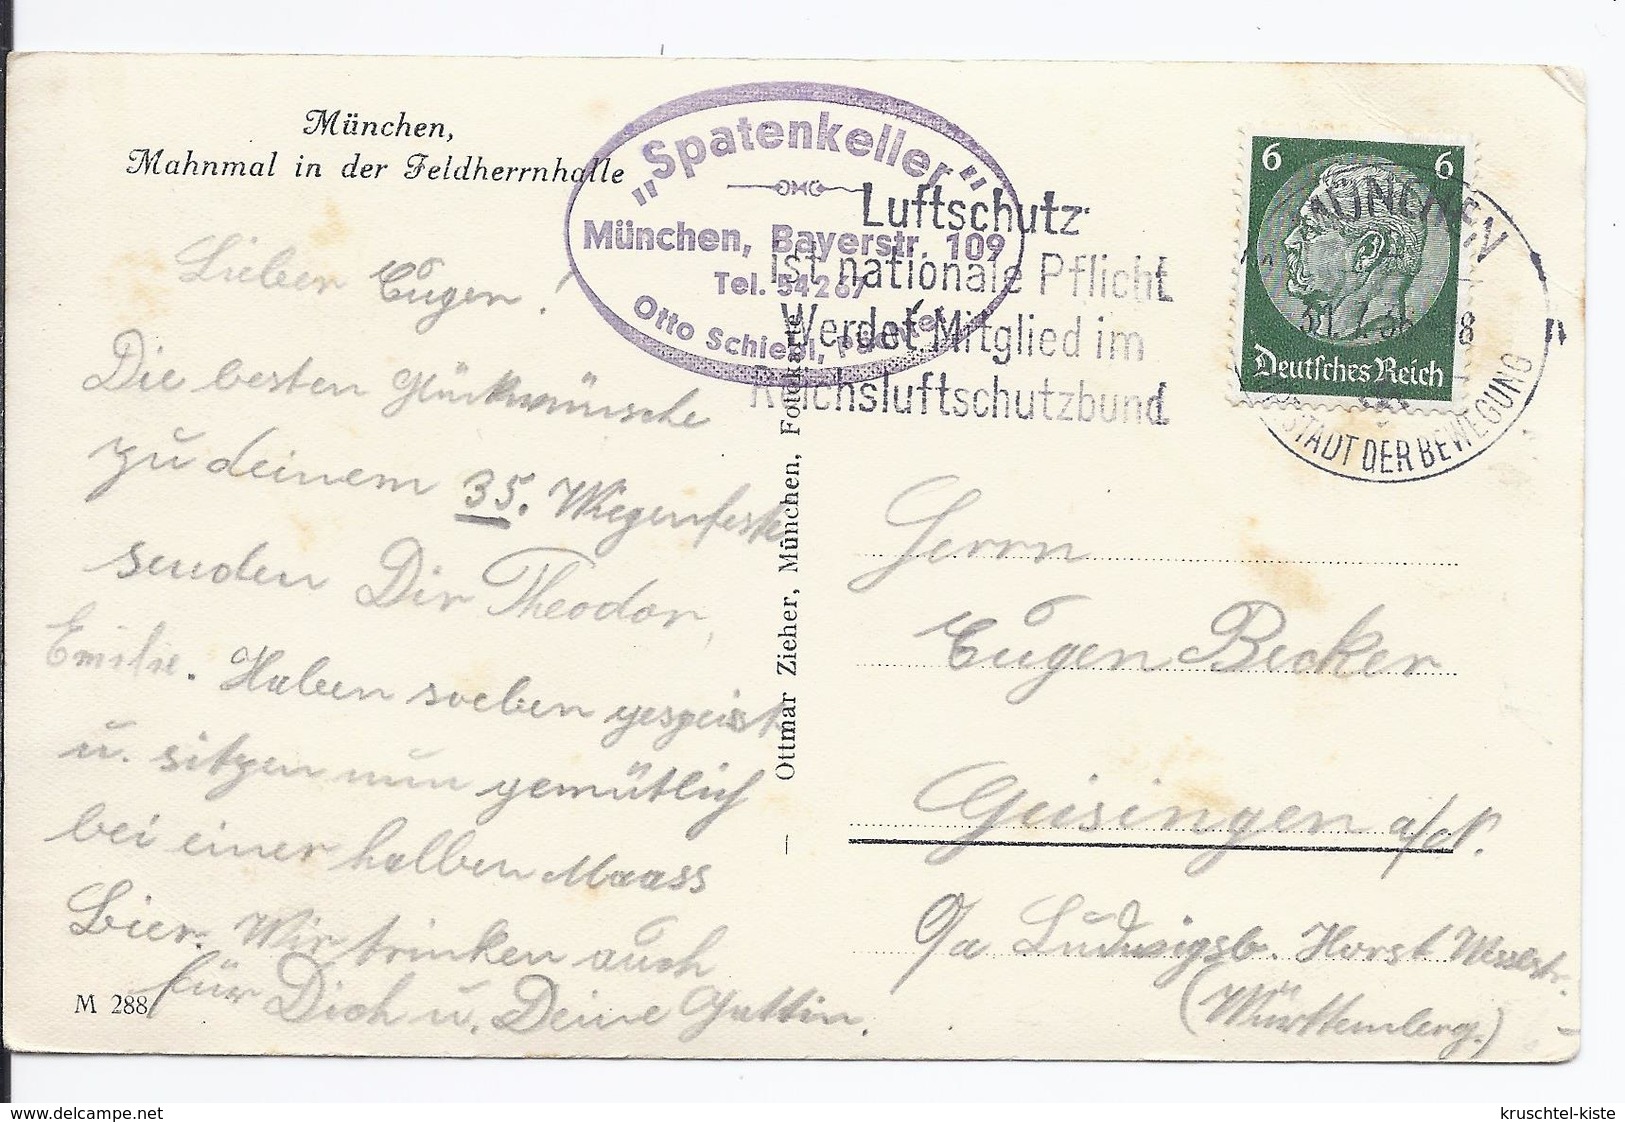 München,
Mahnmal in der Feldherrnhalle
„Spatenkeller"
München, Bayerstr. 109
Tel. 54267
Otto Schiedl,
Luftschutz
ist nationale Pflicht
Werdet Mitglied im
Reichsluftschutzbund
6 6
Deutsches Reich
MÜNCHEN
STADT DER BEWEGUNG
Lieber Eugen!
Die besten Glückwünsche
zu deinem 35. Wiegenfeste
senden Dir Theodor,
Emilie. Haben soeben gespeist
u. sitzen nun gemütlich
bei einer halben Maass
Bier. Wir trinken auch
für Dich u. Deine Gattin.
M 288
Ottmar Zieher, München, Fotokarte
Herrn
Eugen Becker
Geisingen a/N.
O/a Ludwigsb. Horst Wesselstr.
(Württemberg.)
www.delcampe.net
kruschtel-kiste